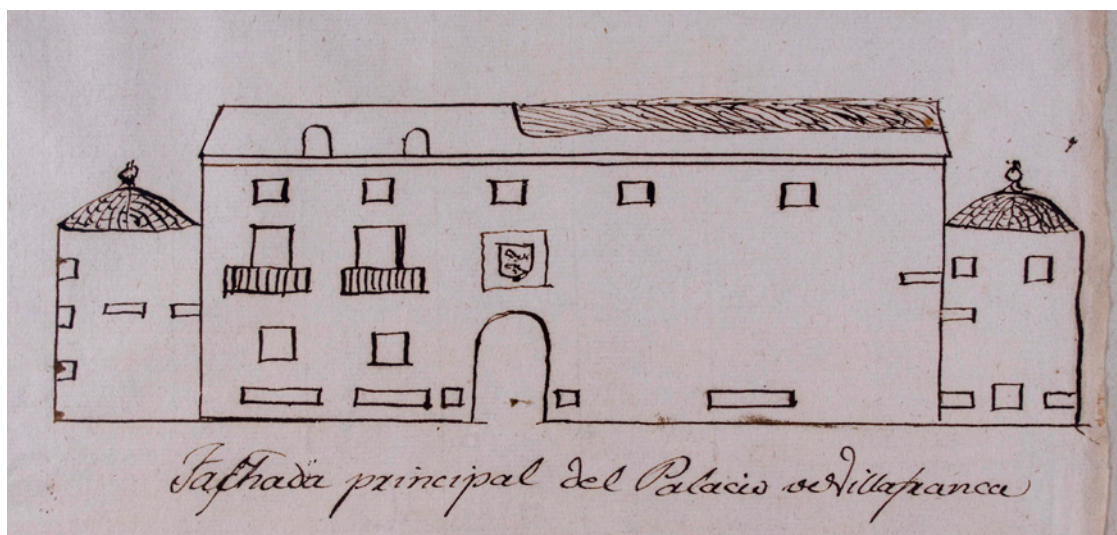 Fachada principal del Palacio de Villafranca